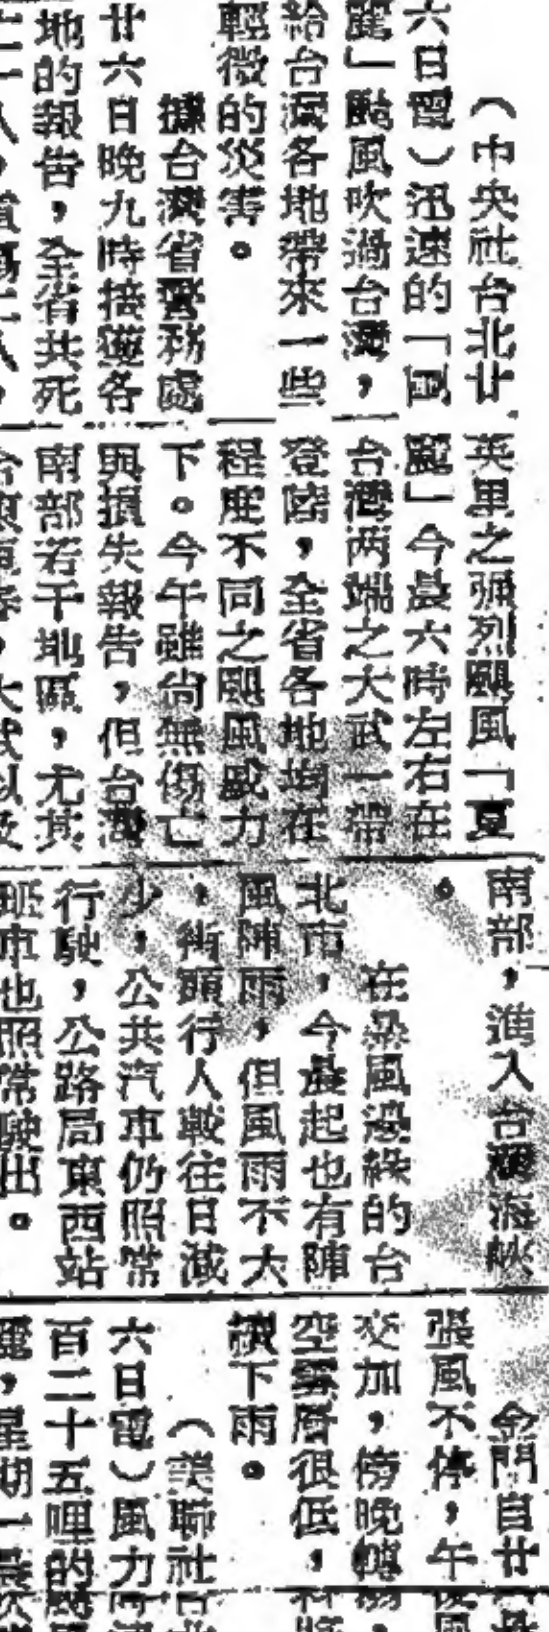 (中央社台北廿
六日電)迅速的「夏
麗」颱風吹過台灣,
給台灣各地帶來一些
輕微的災害。
據台灣省警務處
廿六日晚九時接獲各
地的報告,全省共死
英里之強烈颶風「夏
麗」今晨六時左右在
台灣两端之大武一帶
登陸,全省各地均在
程度不同之颶風威力
下。今午雖尚無傷亡
與損失報告,但台灣
南部若干地區,尤其
南部,進入台灣海峽
。
在暴風邊緣的台
北市,今晨起也有陣
風陣雨,但風雨不大
,街頭行人較往日減
少,公共汽車仍照常
行駛,公路局東西站
班車也照常駛出。
金門自廿
張風不停,午
交加,傍晚轉
空雲層很低,
續下雨。
(美聯社
六日電)風力
百二十五哩的
麗,星期一晨